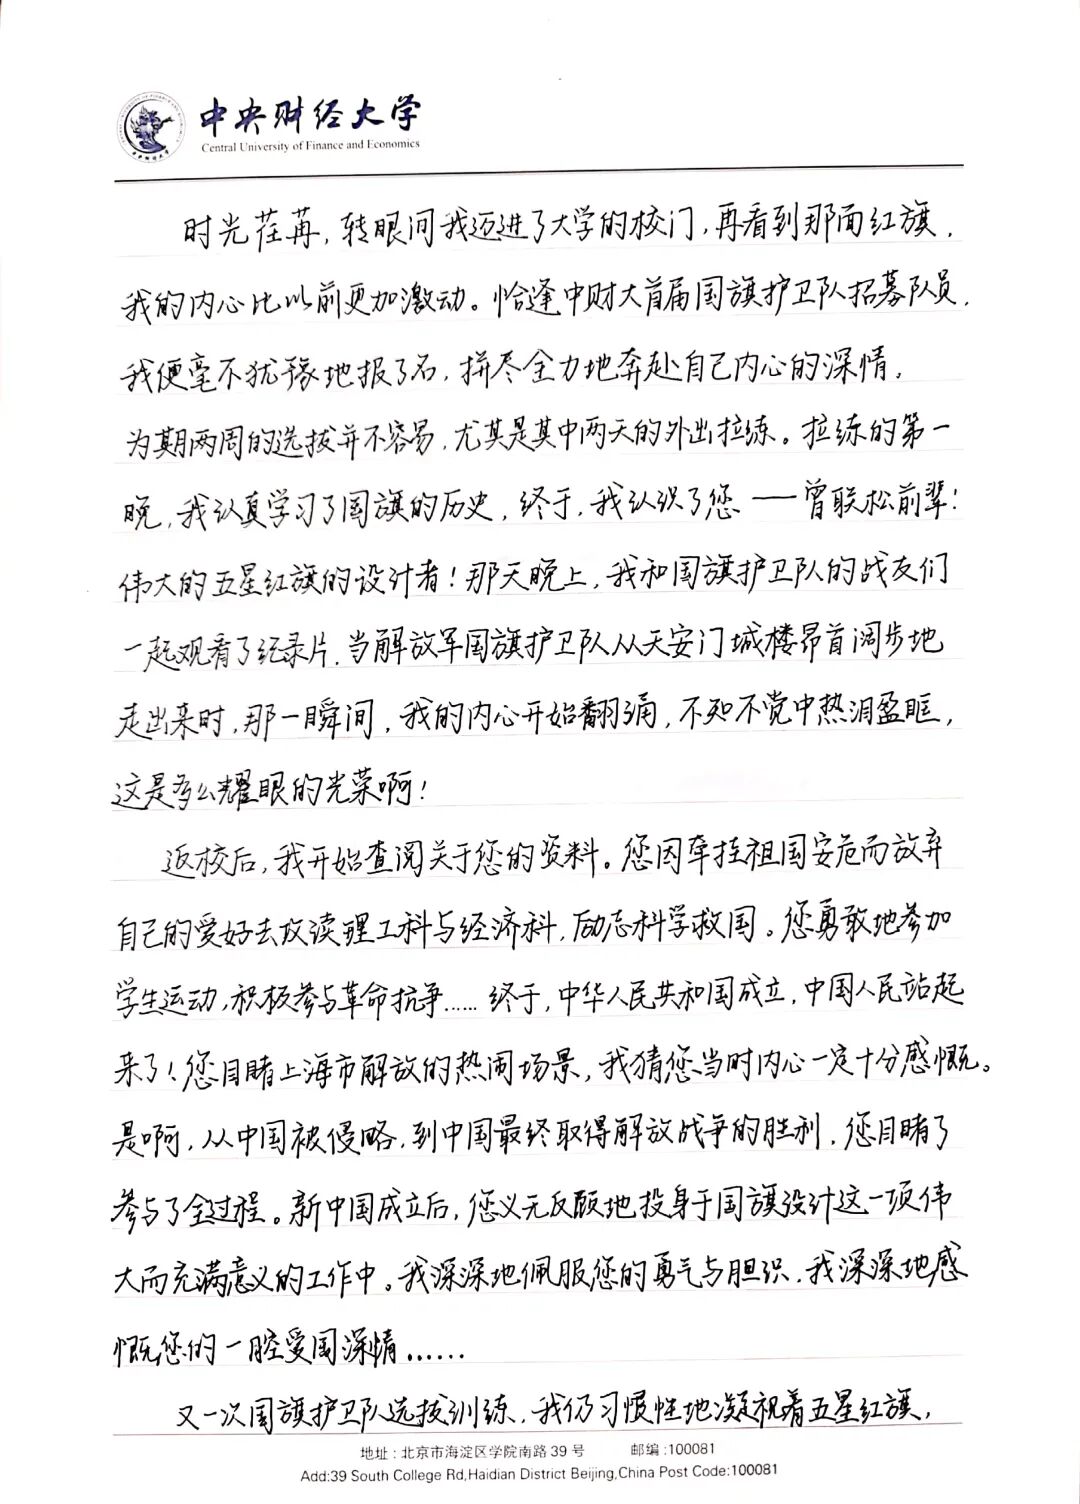 中央财经大学
Central University of Finance and Economics
时光荏苒，转眼间我迈进了大学的校门，再看到那面红旗，
我的内心比以前更加激动。恰逢中财大首届国旗护卫队招募队员，
我便毫不犹豫地报了名，拼尽全力地奔赴自己内心的深情，
为期两周的选拔并不容易，尤其是其中两天的外出拉练。拉练的第一
晚，我认真学习了国旗的历史，终于，我认识了您——曾联松前辈！
伟大的五星红旗的设计者！那天晚上，我和国旗护卫队的战友们
一起观看了纪录片，当解放军国旗护卫队从天安门城楼昂首阔步地
走出来时，那一瞬间，我的内心开始翻涌，不知不觉中热泪盈眶，
这是多么耀眼的光荣啊！
返校后，我开始查阅关于您的资料。您因牵挂祖国安危而放弃
自己的爱好去攻读理工科与经济科，励志科学救国。您勇敢地参加
学生运动，积极参与革命抗争……终于，中华人民共和国成立，中国人民站起
来了！您目睹上海市解放的热闹场景，我猜您当时内心一定十分感慨。
是啊，从中国被侵略，到中国最终取得解放战争的胜利，您目睹了
参与了全过程。新中国成立后，您义无反顾地投身于国旗设计这一项伟
大而充满意义的工作中。我深深地佩服您的勇气与胆识，我深深地感
慨您的一腔爱国深情……
又一次国旗护卫队选拔训练，我仍习惯性地凝视着五星红旗，
地址：北京市海淀区学院南路39号 邮编：100081
Add:39 South College Rd,Haidian District Beijing,China Post Code:100081